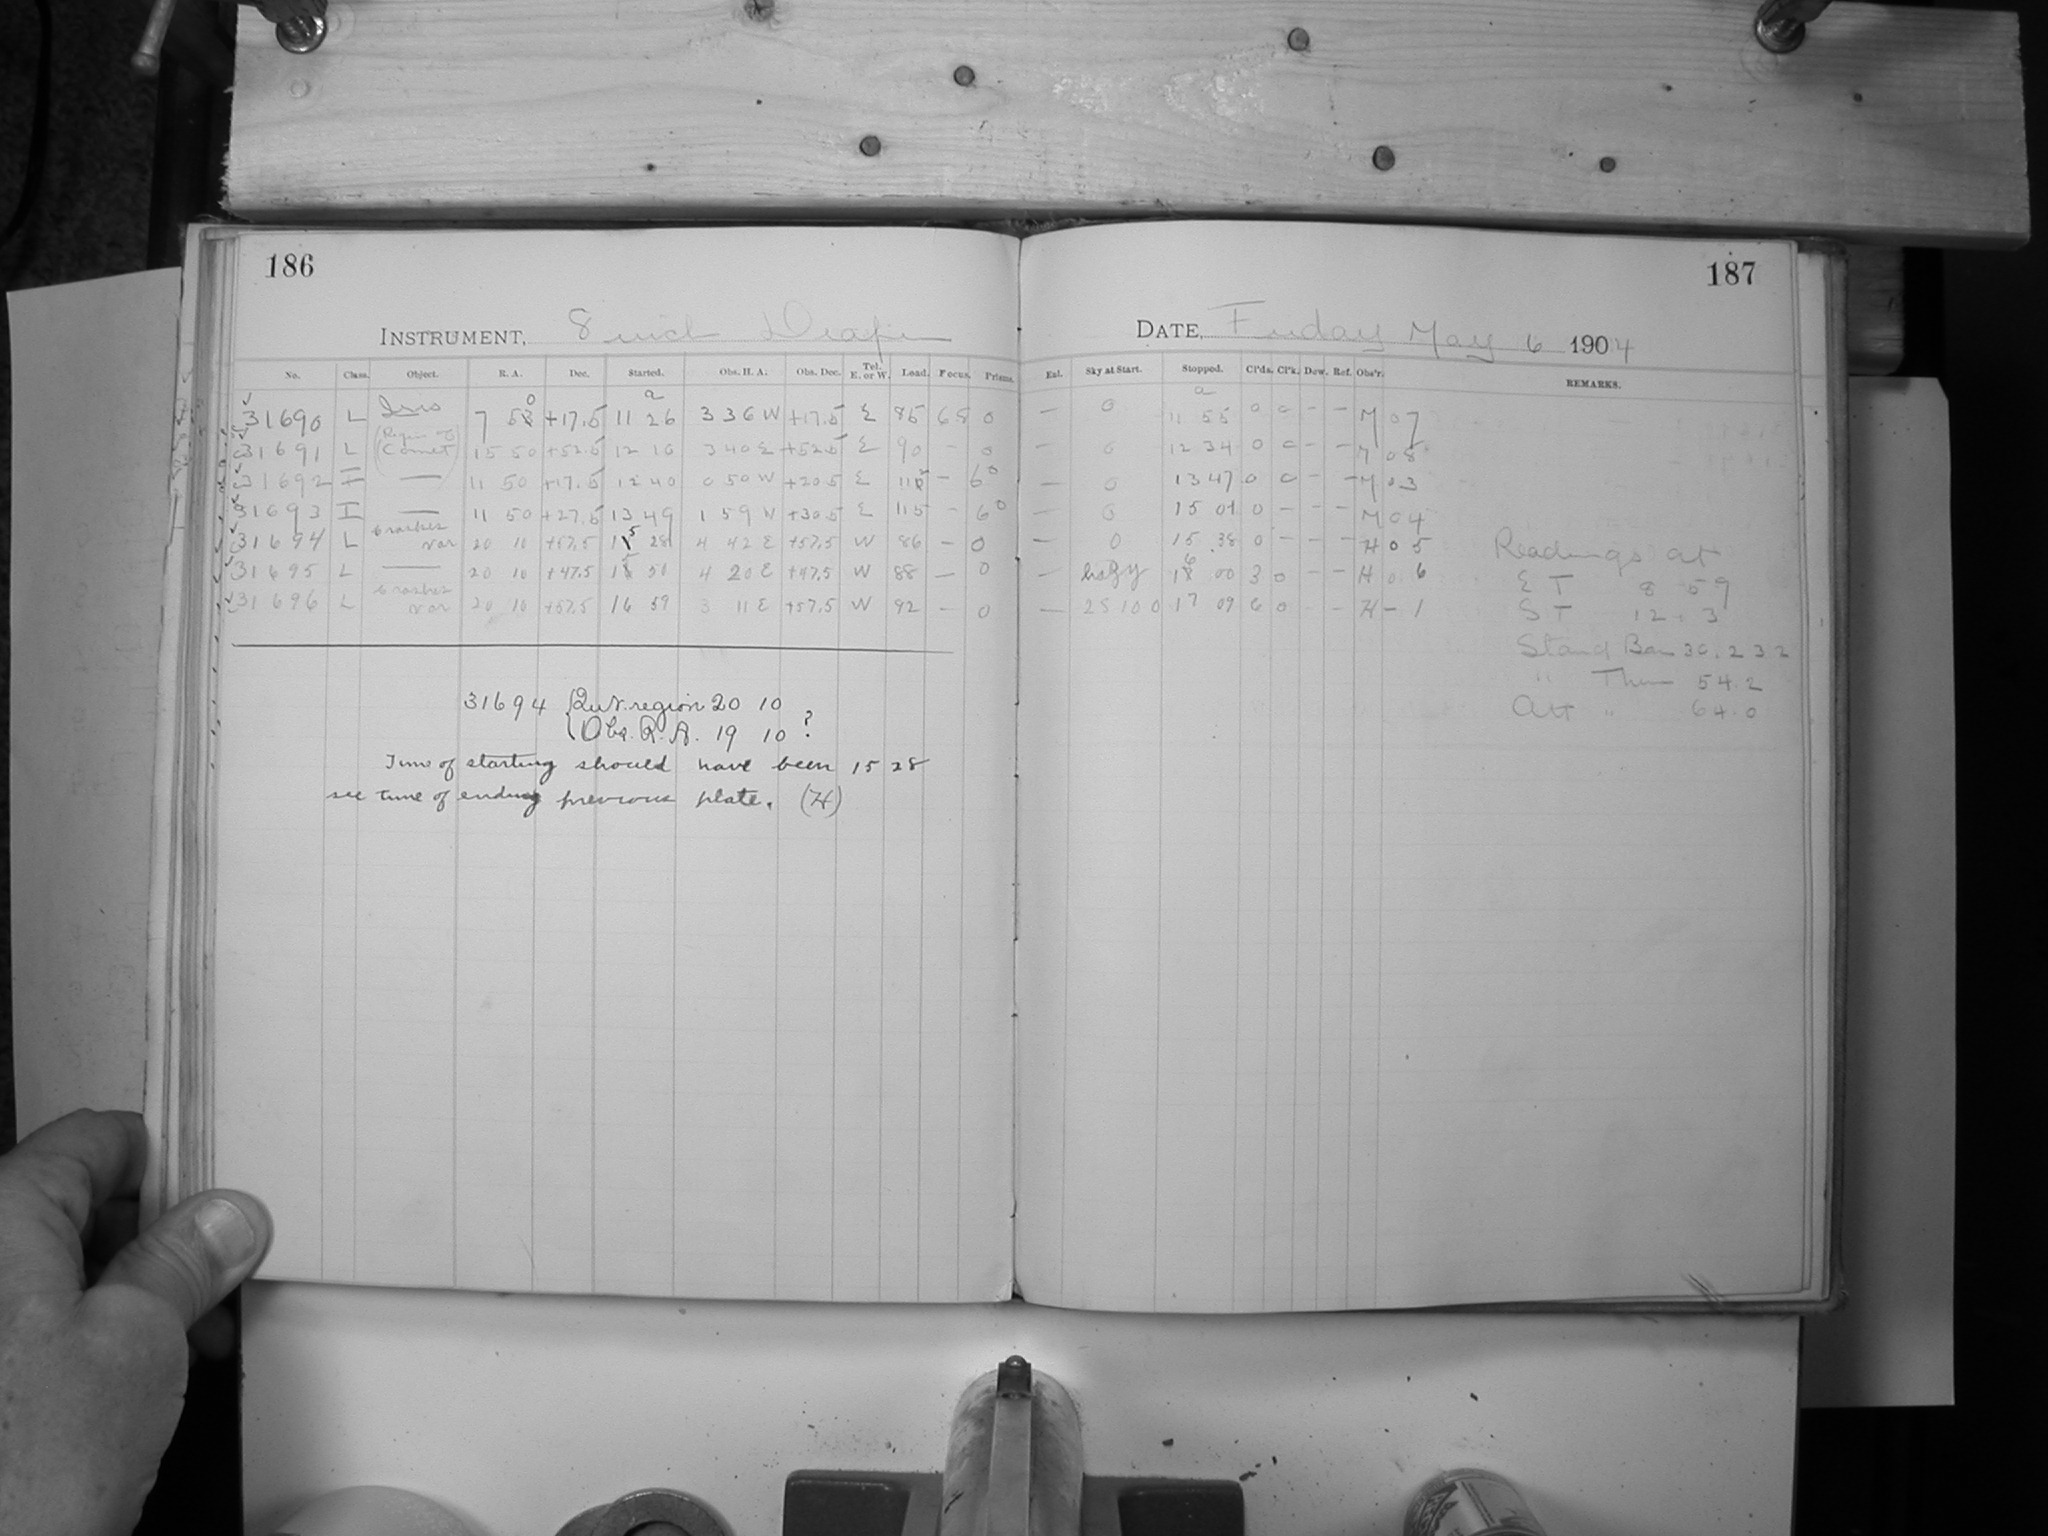 186
INSTRUMENT, 8 inch Draper
No. Class. Object. R. A. Dec. Started. Obs. H. A. Obs. Dec. Tel. E. or W. Lead. Focus. Prisms.
31690 L Iris 7 50 +17.5 11 26 3 36 W +17.5 E 85 68 0
31691 L (Region of Comet) 15 50 +52.5 12 16 3 40 E +52.5 E 90 – 0
31692 I — 11 50 +17.5 12 40 0 50 W +20.5 E – 6°
31693 I — 11 50 +27.5 13 49 1 59 W +30.5 E 115 – 6°
31694 L var 20 10 +57.5 15 28 4 42 E +57.5 W 86 – 0
31695 L — 20 10 +47.5 15 50 4 20 E +47.5 W 88 – 0
31696 L var 20 10 +57.5 16 59 3 11 E +57.5 W 92 – 0
31694 { region 20 10
{ Obs. R. A. 19 10 ?
Time of starting should have been 15 28
see time of ending previous plate. (H)
187
DATE, Friday May 6 1904
Ext. Sky at Start. Stopped. Cl'ds. Cl'k. Dew. Ref. Obs'r. REMARKS.
– 0 11 55 0 0 – – M 07
– 0 12 34 0 0 – – M 08
– 0 13 47 0 0 – – M 03
– 0 15 01 0 – – – M 04
– 0 15 38 0 – – – H 05
– hazy 16 00 3 0 – – H 06
– 25 100 17 09 6 0 – – H – 1
Readings at
E T 8 59
S T 12 . 3
Stand Bar 30.232
" Ther 54.2
Att " 64.0